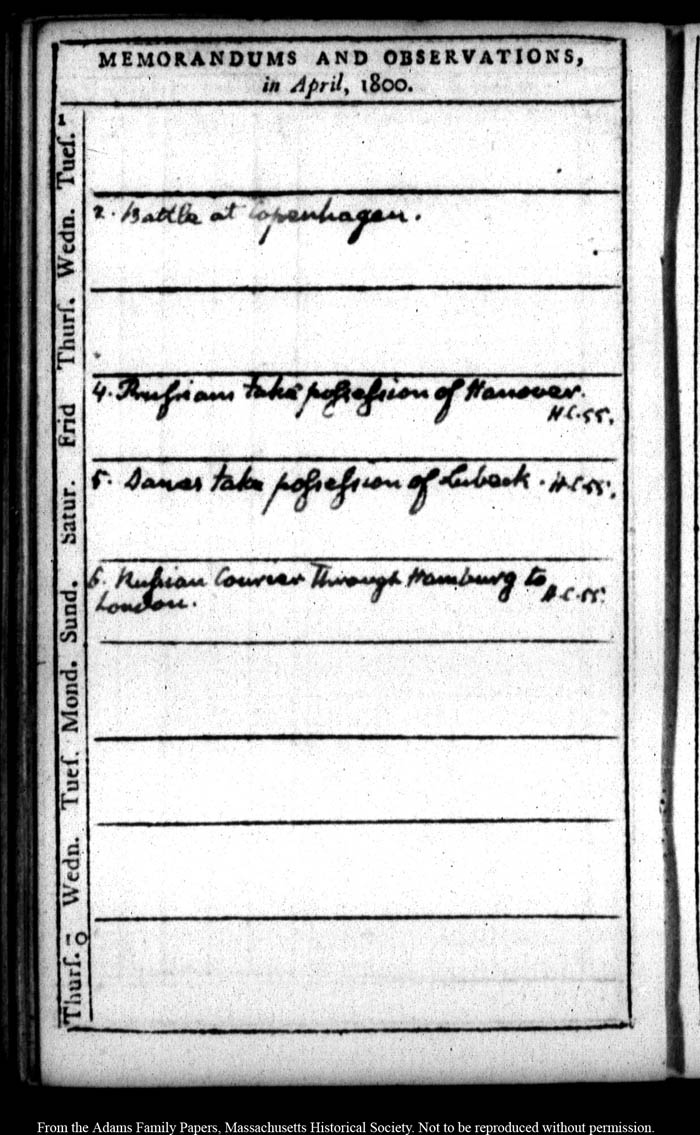 MEMORANDUMS AND OBSERVATIONS,
in April, 1800.
Tueſ. 1
Wedn.
2. Battle at Copenhagen.
Thurſ.
Frid
4. Pruſsians take poſseſsion of Hanover.
H.C.55.
Satur.
5. Danes take poſseſsion of Lubeck. H.C.55.
Sund.
6. Ruſsian Courier through Hamburg to
London. H.C.55.
Mond.
Tueſ.
Wedn.
Thurſ. 10
From the Adams Family Papers, Massachusetts Historical Society. Not to be reproduced without permission.